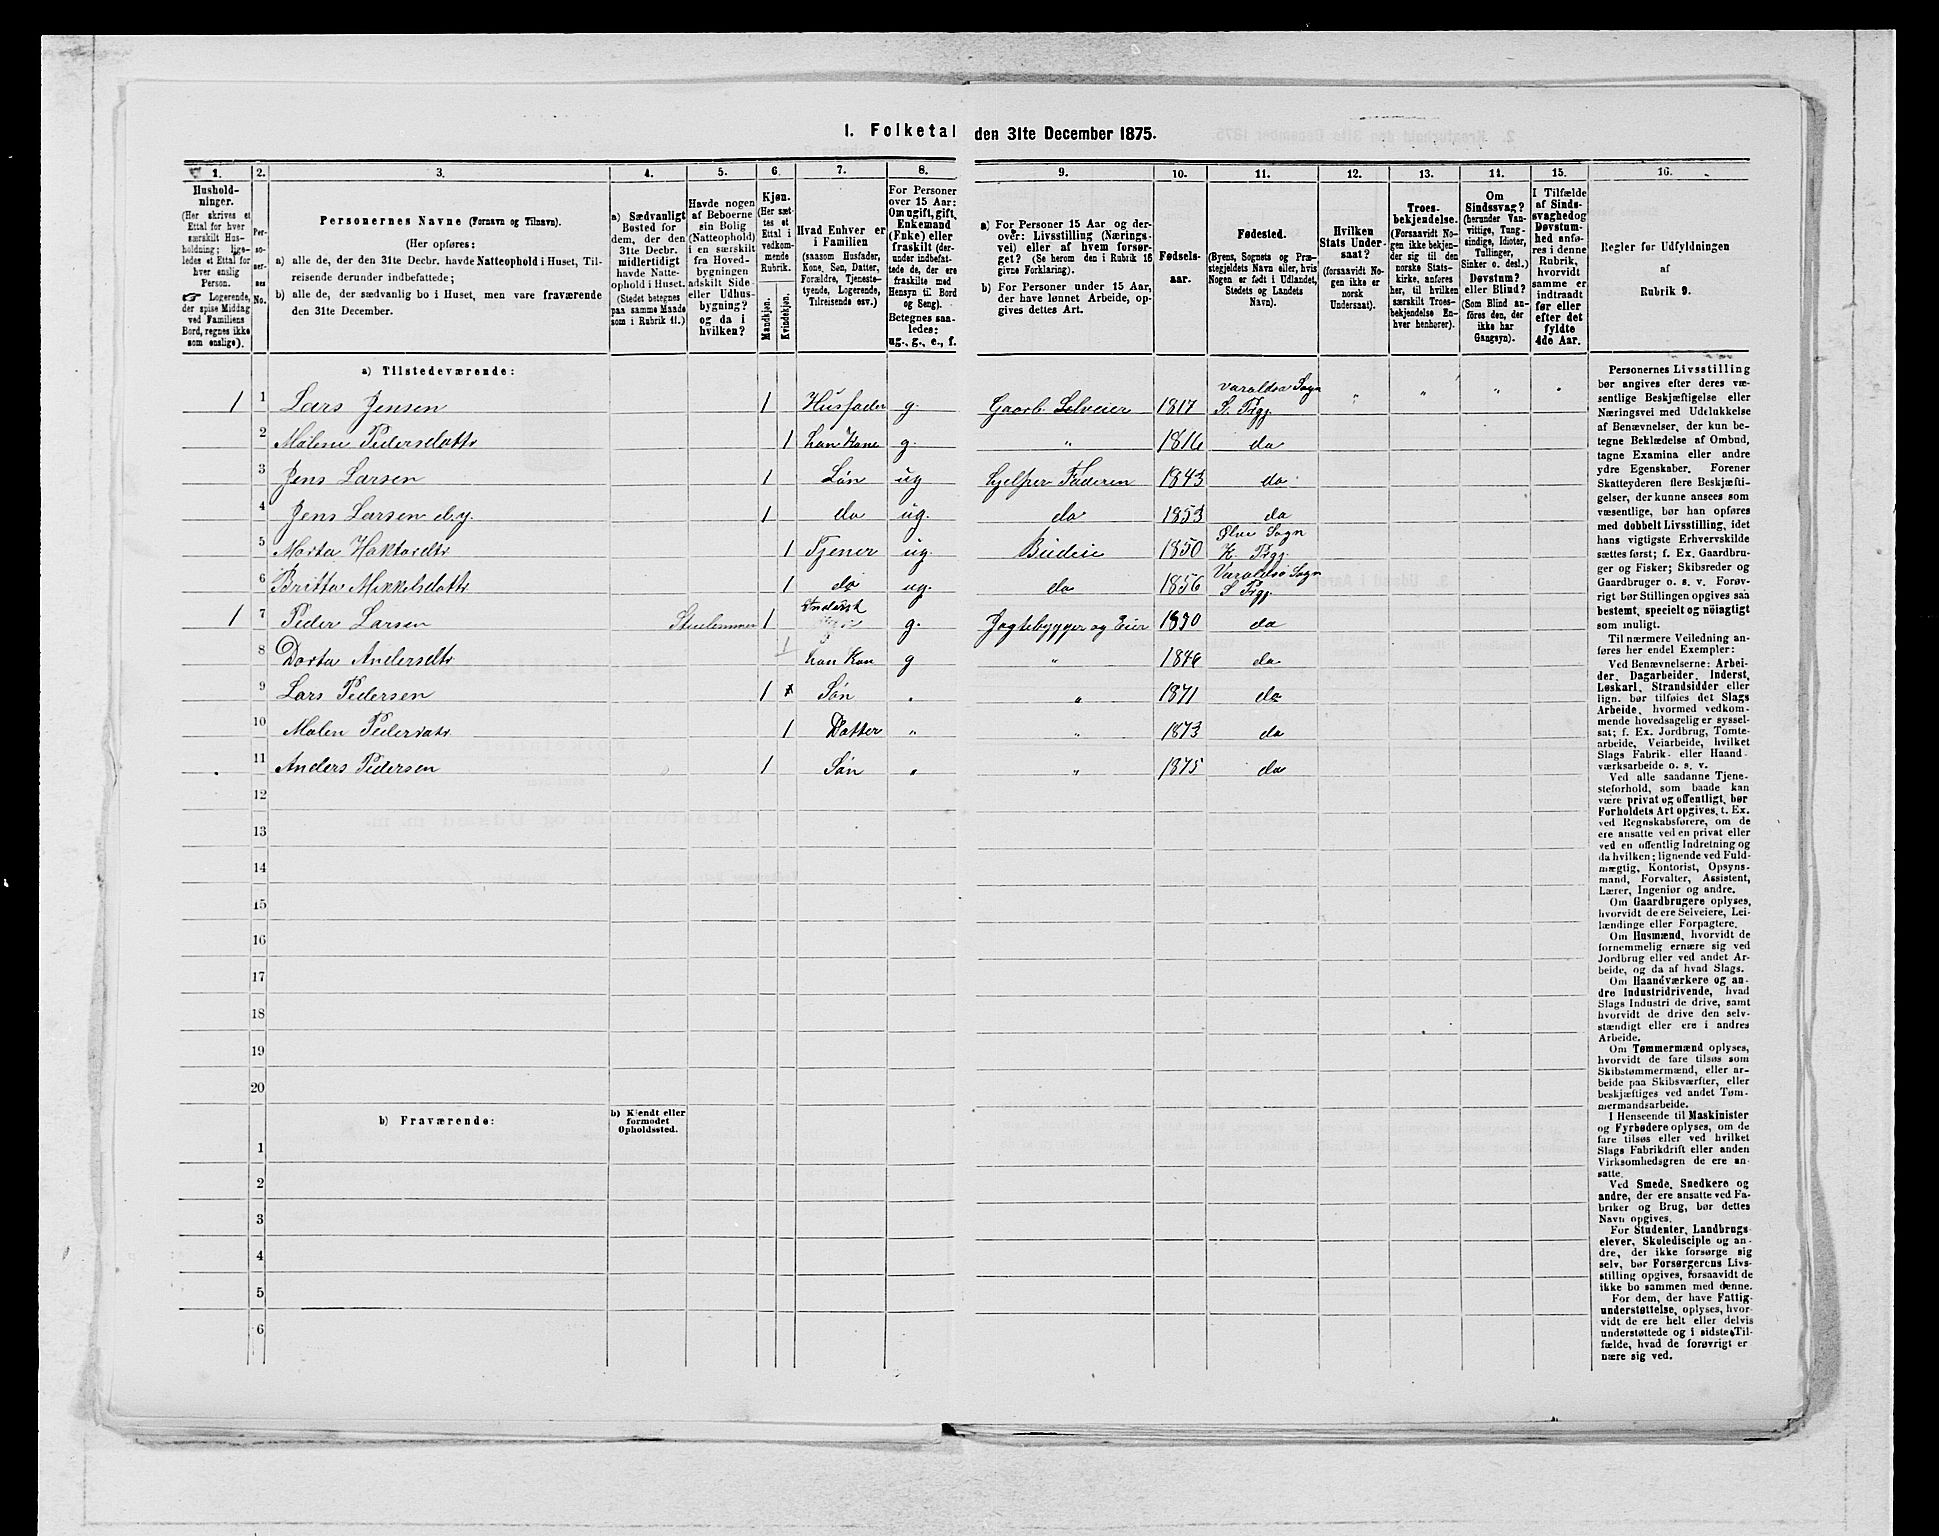 1. Folketal den 31te December 1875.
1. 2. 3. 4. 5. 6. 7. 8. 9. 10. 11. 12. 13. 14. 15. 16.
Hushold-
ninger.
(Her skrives et
Ettal for hver
særskilt Hus-
holdning; lige-
ledes et Ettal for
hver enslig
Person.
☞ Logerende,
der spise Middag
ved Familiens
Bord, regnes ikke
som enslige).
Per-
so-
ner-
nes
No.
Personernes Navne (Fornavn og Tilnavn).
(Her opføres:
a) alle de, der den 31te Decbr. havde Natteophold i Huset, Til-
reisende derunder indbefattede;
b) alle de, der sædvanlig bo i Huset, men vare fraværende
den 31te December.
a) Sædvanligt
Bosted for
dem, der den
31te Decbr.
midlertidigt
havde Natte-
ophold i Huset.
(Stedet betegnes
paa samme Maade
som i Rubrik 11.)
Havde nogen
af Beboerne
sin Bolig
(Natteophold)
i en særskilt
fra Hoved-
bygningen
adskilt Side-
eller Udhus-
bygning?
og da i
hvilken?
Kjøn.
(Her sæt-
tes et
Ettal i
vedkom-
mende
Rubrik.
Mandkjøn.
Kvindekjøn.
Hvad Enhver er
i Familien
(saasom Husfader,
Kone, Søn, Datter,
Forældre, Tjeneste-
tyende, Logerende,
Tilreisende osv.)
For Personer
over 15 Aar:
Om ugift, gift,
Enkemand
(Enke) eller
fraskilt (der-
under indbefat-
tede de, der ere
fraskilte med
Hensyn til Bord
og Seng).
Betegnes saa-
ledes:
ug., g., e., f.
a) For Personer 15 Aar og der-
over: Livsstilling (Nærings-
vei) eller af hvem forsør-
get? (Se herom den i Rubrik 16
givne Forklaring).
b) For Personer under 15 Aar,
der have lønnet Arbeide, op-
gives dettes Art.
Fødsels-
aar.
Fødested.
(Byens, Sognets og Præ-
stegjeldets Navn eller, hvis
Nogen er født i Udlandet,
Stedets og Landets
Navn).
Hvilken
Stats Under-
saat?
(forsaavidt No-
gen ikke er
norsk
Undersaat).
Troes-
bekjendelse.
(Forsaavidt No-
gen ikke bekjen-
der sig til den
norske Stats-
kirke, anføres
her, til hvilken
særskilt Troes-
bekjendelse En-
hver henhører).
Om
Sindssvag?
(herunder Van-
vittige, Tung-
sindige, Idioter,
Tullinger,
Sinker o. desl.)
Døvstum?
eller Blind?
(Som Blind an-
føres den, der
ikke har
Gangsyn).
I Tilfælde
af Sinds-
svaghed og
Døvstum-
hed anfø-
res i denne
Rubrik,
hvorvidt
samme er
indtraadt
før eller
efter det
fyldte
4de Aar.
Regler for Udfyldningen
af
Rubrik 9.
a) Tilstedeværende:
1 1 Lars Jensen 1 Husfader g. Gaarb. Selveier 1817 Varaldsø Sogn S. Prgj. " " " "
2 Malene Pedersdattr 1 hans Kone g. " 1816 do
3 Jens Larsen 1 Søn ug hjelper Faderen 1843 do
4 Jens Larsen d.y. 1 do ug. do 1853 do
5 Marta Haktordtr 1 Tjener ug. Budeie 1850 Ølve Sogn K. Prgj.
6 Britta Mikkelsdattr 1 do ug. do 1856 Varaldsø Sogn S Prgj.
1 7 Peder Larsen 1 Inderst g. Jagtebygger og Eier 1830 do
8 Dorta Andersdtr 1 hans Kon g " 1846 do
9 Lars Pedersen 1 Søn " " 1871 do
10 Malen Pedersdtr 1 Datter " " 1873 do
11 Anders Pedersen 1 Søn " " 1875 do
12
13
14
15
16
17
18
19
20
b) Fraværende:
b) Kjendt eller
formodet
Opholdssted.
1
2
3
4
5
6
Personernes Livsstilling
bør angives efter deres væ-
sentlige Beskjæftigelse eller
Næringsvei med Udelukkelse
af Benævnelser, der kun be-
tegne Beklædelse af Ombud,
tagne Examina eller andre
ydre Egenskaber. Forener
Skatteyderen flere Beskjæfti-
gelser, der kunne ansees som
væsentlige, bør han opføres
med dobbelt Livsstilling, idet
hans vigtigste Erhvervskilde
sættes først; f. Ex. Gaardbru-
ger og Fisker; Skibsreder og
Gaardbruger o. s. v. Forøv-
rigt bør Stillingen opgives saa
bestemt, specielt og nöiagtigt
som muligt.
Til nærmere Veiledning an-
føres her endel Exempler:
Ved Benævnelserne: Arbei-
der, Dagarbeider, Inderst,
Løskarl, Strandsidder eller
lign. bør tilføies det Slags
Arbeide, hvormed vedkom-
mende hovedsagelig er syssel-
sat; f. Ex. Jordbrug, Tomte-
arbeide, Veiarbeide, hvilket
Slags Fabrik- eller Haand-
værksarbeide o. s. v.
Ved alle saadanne Tjene-
steforhold, som baade kan
være privat og offentligt, bør
Forholdets Art opgives, t. Ex.
ved Regnskabsførere, om de
ere ansatte ved en privat eller
ved en offentlig Indretning og
da hvilken; lignende ved Fuld-
mægtig, Kontorist, Opsyns-
mand, Forvalter, Assistent,
Lærer, Ingeniør og andre.
Om Gaardbrugere oplyses,
hvorvidt de ere Selveiere, Lei-
lændinge eller Forpagtere.
Om Husmænd, hvorvidt de
fornemmelig ernære sig ved
Jordbrug eller ved andet Ar-
beide, og da af hvad Slags.
Om Haandværkere og an-
dre Industridrivende, hvad
Slags Industri de drive, samt
hvorvidt de drive den selv-
stændigt eller ere i andres
Arbeide.
Om Tømmermænd oplyses,
hvorvidt de fare tilsøs som
Skibstømmermænd, eller ar-
beide paa Skibsværfter, eller
beskjæftiges ved andet Tøm-
mermandsarbeide.
I Henseende til Maskinister
og Fyrbødere oplyses, om de
fare tilsøs eller ved hvilket
Slags Fabrikdrift eller anden
Virksomhedsgren de ere an-
satte.
Ved Smede, Snedkere og
andre, der ere ansatte ved Fa-
briker og Brug, bør dettes
Navn opgives.
For Studenter, Landbrugs-
elever, Skoledisciple og an-
dre, der ikke forsørge sig
selv, bør Forsørgerens Livs-
stilling opgives, forsaavidt de
ikke bo sammen med denne.
For dem, der have Fattig-
understøttelse, oplyses, hvor-
vidt de ere helt eller delvis
understøttede og i sidste Til-
fælde, hvad de forøvrigt er
nære sig ved.